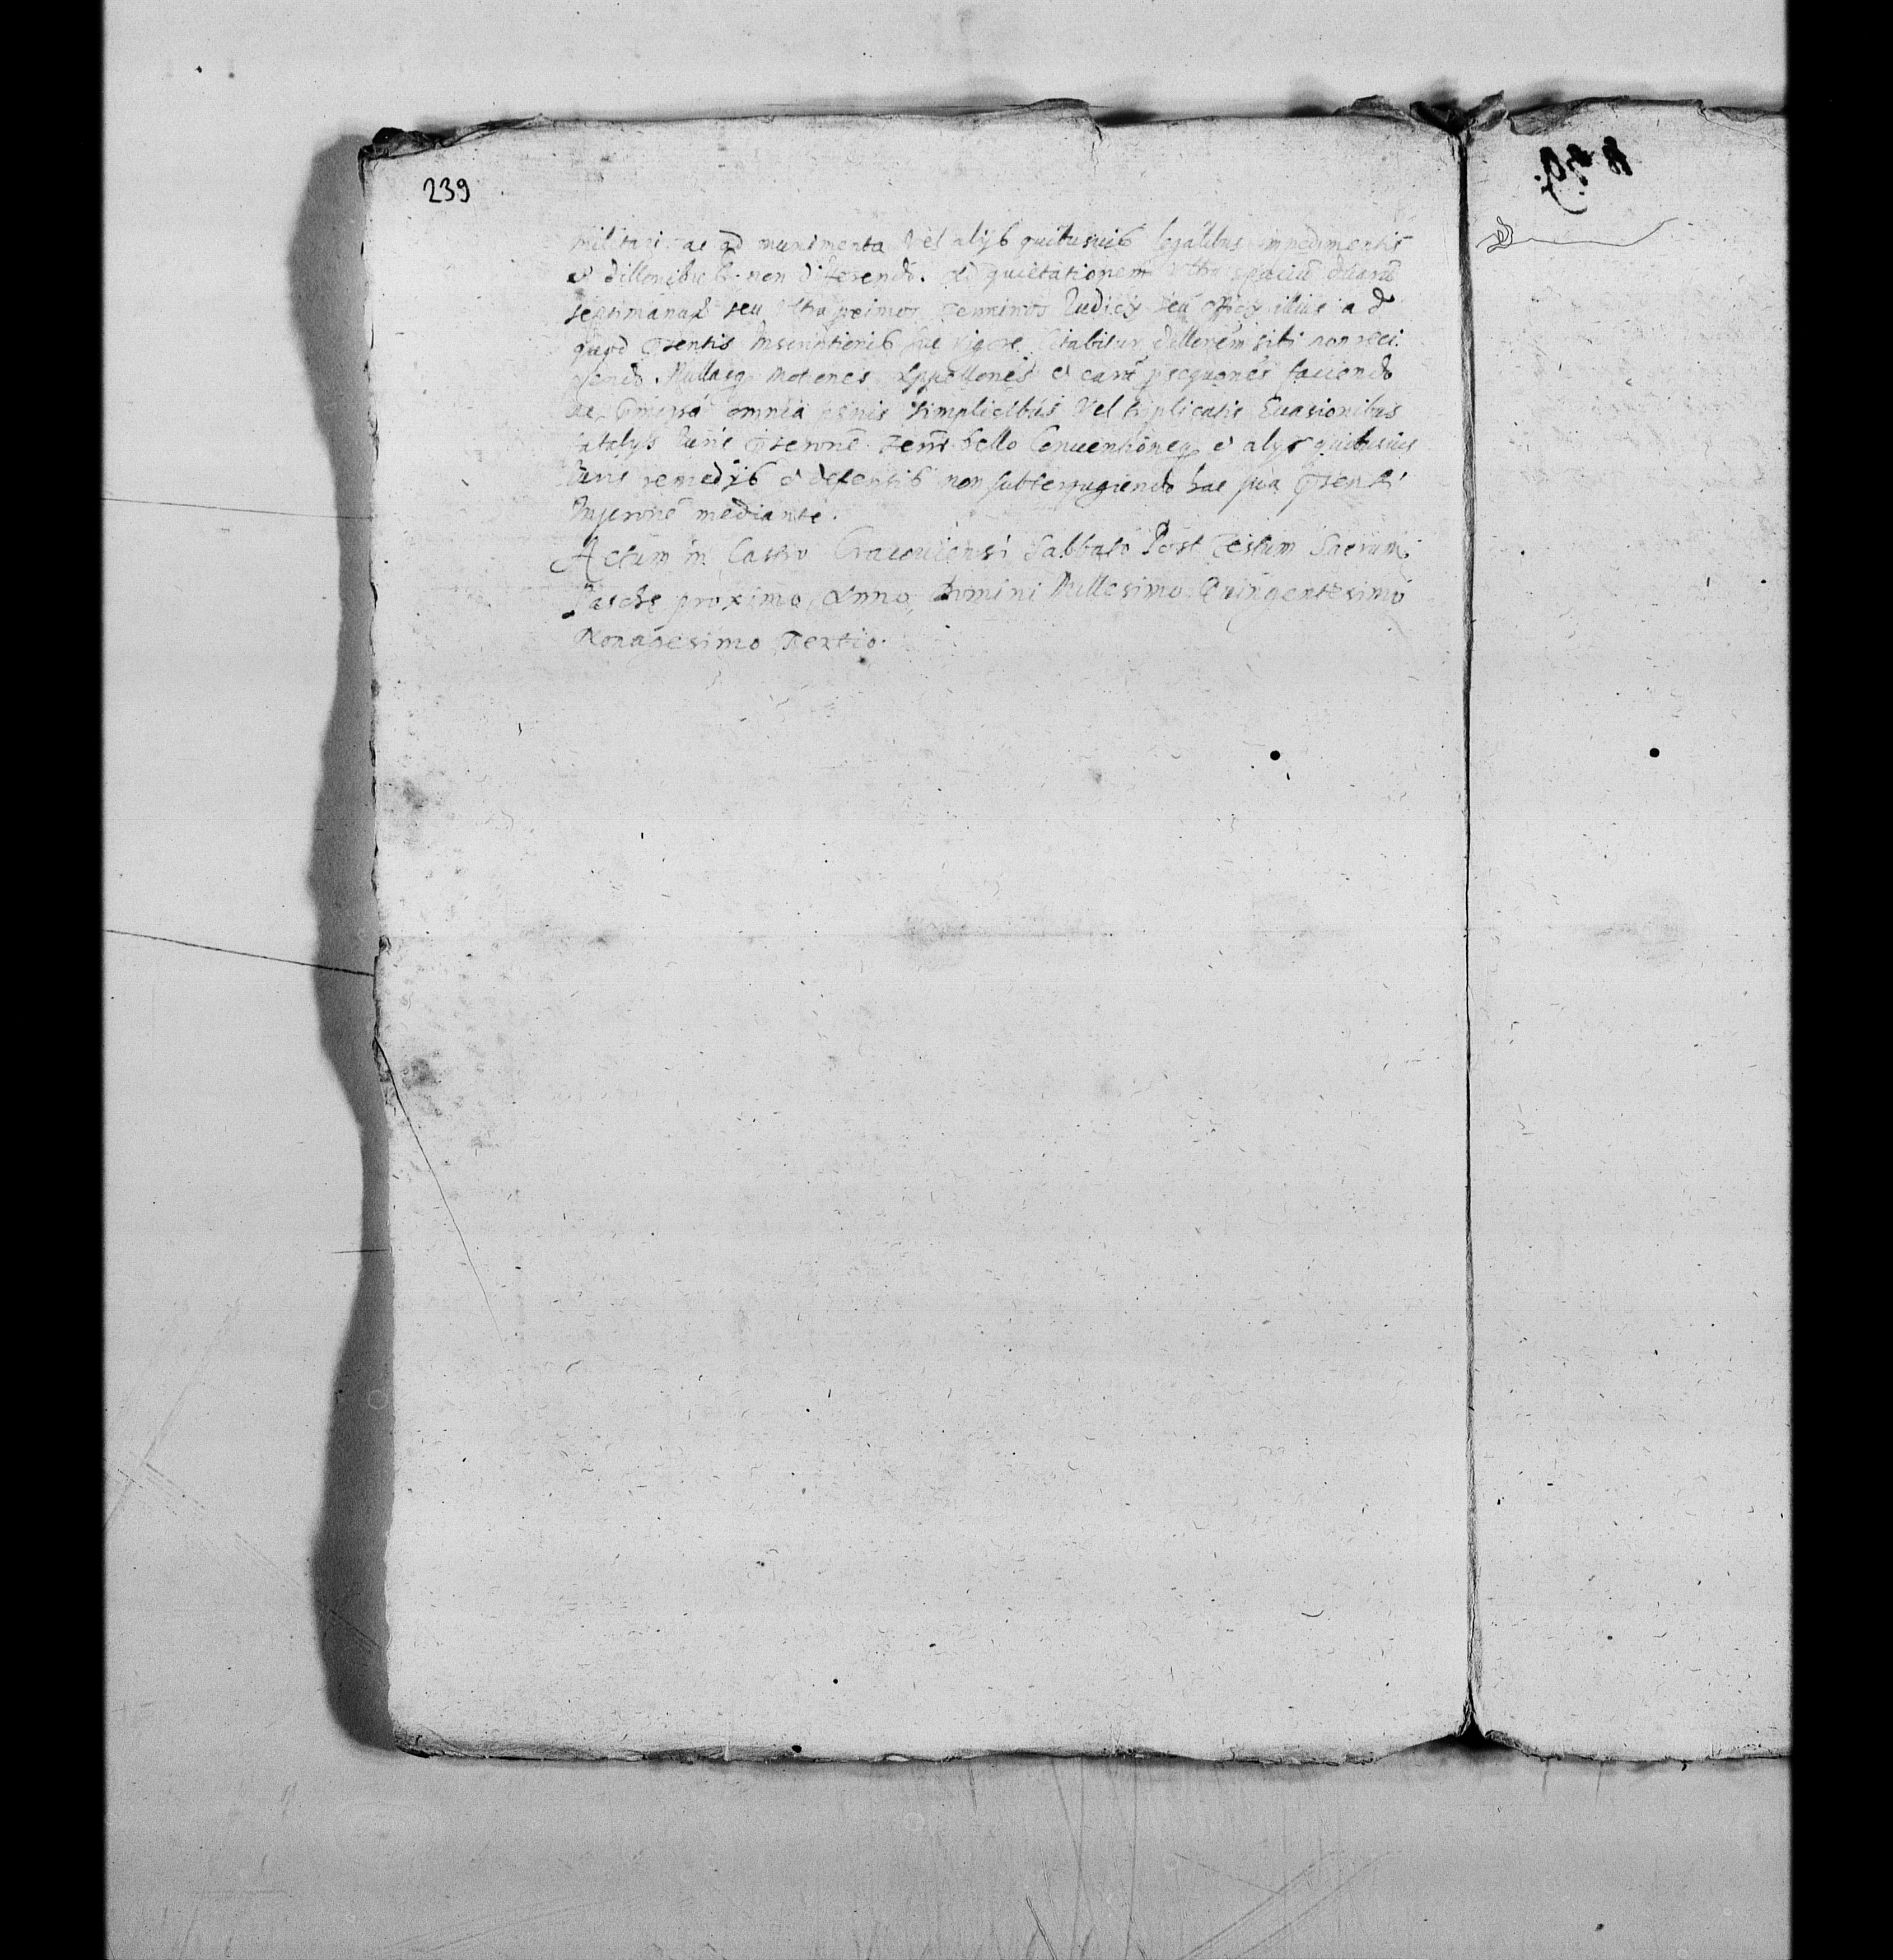 239
militari ac ad munimenta Vel alijs quibusuis legalibus impedimentis
et dillonibus non differendo. Ad quietationem Vltra spaciu duaru
septimanar seu Vltra primos Terminos Iudicij seu officij illius ad
quod pntis Inscriptionis suae vigore Citabitur dillonem sibi non reci
piendo. Nullasq motiones Appellones et earu psequones faciendo
ac omnia simplicibus Vel triplicatis Euasionibus
Iuris Terris bello Conuentioneq et alijs quibusuis
Iuris remedijs et defensis non subterfugiendo hac sua pnti
Inscrone mediante.
Actum in Castro Cracouiensi Sabbato Post Festum Sacrum
Paschę proximo, Anno Domini Millesimo Quingentesimo
Nonagesimo Tertio.